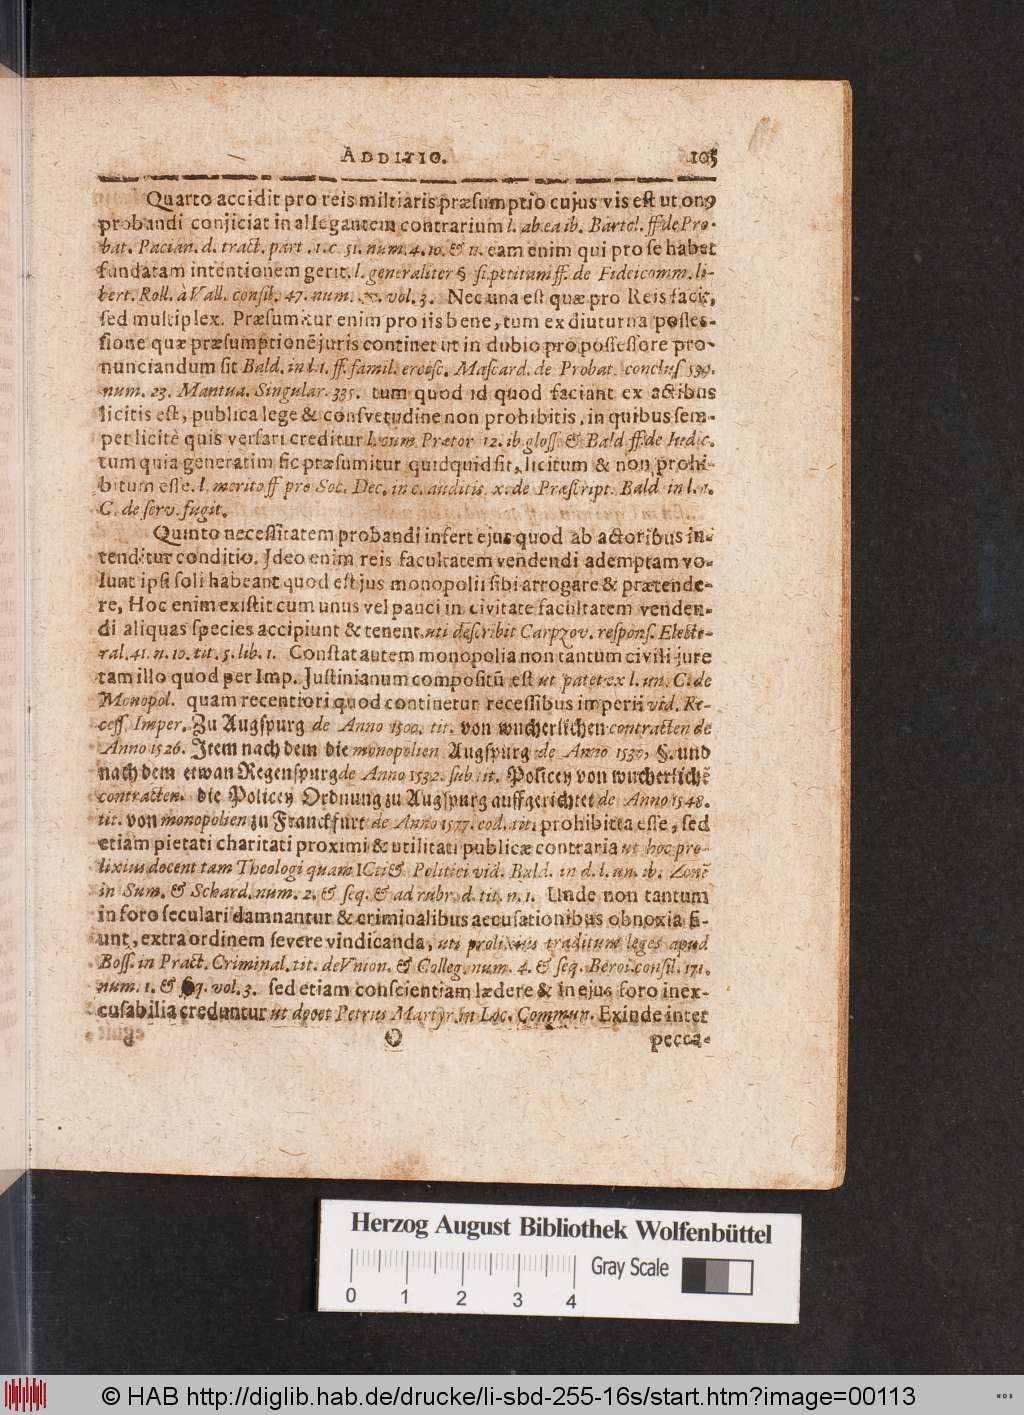 ADDITIO. 105
Quarto accidit pro reis militaris præsumptio cujus vis est ut onꝰ
probandi conjiciat in allegantem contrarium l. ab ea ib. Bartol. ff de Pro-
bat. Pacian. d. tract. part. 1. c. 51. num. 4. 10. & 11. eam enim qui pro se habet
fundatam intentionem gerit. l. generaliter § si petitum ff. de Fideicomm. li-
bert. Roll. à Vall. consil. 47. num. vol. 3. Nec una est quæ pro Reis facit,
sed multiplex. Præsumitur enim pro iis bene, tum ex diuturna posses-
sione quæ præsumptionē juris continet ut in dubio pro possessore pro-
nunciandum sit Bald. in l. 1. ff. famil. ercisc. Mascard. de Probat. conclus 539.
num. 23. Mantua. Singular. 335. tum quod id quod faciant ex actibus
licitis est, publica lege & consvetudine non prohibitis, in quibus sem-
per licitè quis versari creditur l. cum Prætor 12. ib gloss & Bald. ff de Iudic.
tum quia generatim sic præsumitur quidquid sit, licitum & non prohi-
bitum esse. l. merito ff pro Soc. Dec. in c. auditis x. de Præscript. Bald in l. 1.
C. de serv. fugit.
Quinto necessitatem probandi infert ejus quod ab actoribus in-
tenditur conditio. Jdeo enim reis facultatem vendendi ademptam vo-
lunt ipsi soli habeant quod est jus monopolii sibi arrogare & prætende-
re, Hoc enim existit cum unus vel pauci in civitate facultatem venden-
di aliquas species accipiunt & tenent. uti describit Carpzov. respons. Electo-
ral. 41. n. 10. tit. 5. lib. 1. Constat autem monopolia non tantum civili jure
tam illo quod per Imp. Justinianum compositū est ut patet ex l. un. C. de
Monopol. quam recentiori quod continetur recessibus imperii vid. Re-
cess. Imper. Zu Augspurg de Anno 1500. tit. von wucherlichen contracten de
Anno 1526. Jtem nach dem die monopolien Augspurg de Anno 1530, §. und
nach dem etwan Regenspurg de Anno 1532. sub tit. Policey von wucherlichē
contracten. die Policey Ordnung zu Augspurg auffgerichtet de Anno 1548.
tit. von monopolien zu Franckfurt de Anno 1577. eod. tit. prohibita esse, sed
etiam pietati charitati proximi & utilitati publicæ contraria ut hoc pro-
lixius docent tam Theologi quam ICti & Politici vid. Bald. in d. l. un. ib. Zonē
in Sum. & Schard. num. 2. & seq. & ad rubr. d. tit. n. 1. Unde non tantum
in foro seculari damnantur & criminalibus accusationibus obnoxia fi-
unt, extra ordinem severe vindicanda, uti prolixius traditum leges apud
Boss. in Pract. Criminal. tit. de Vnion. & Colleg. num. 4. & seq. Beroi. consil. 171.
num. 1. & seq. vol. 3. sed etiam conscientiam lædere & in ejus foro inex-
cusabilia creduntur ut docet Petrus Martyr in Loc. Commun. Exinde inter
O pecca-
Herzog August Bibliothek Wolfenbüttel
Gray Scale
0 1 2 3 4
© HAB http://diglib.hab.de/drucke/li-sbd-255-16s/start.htm?image=00113
WDB